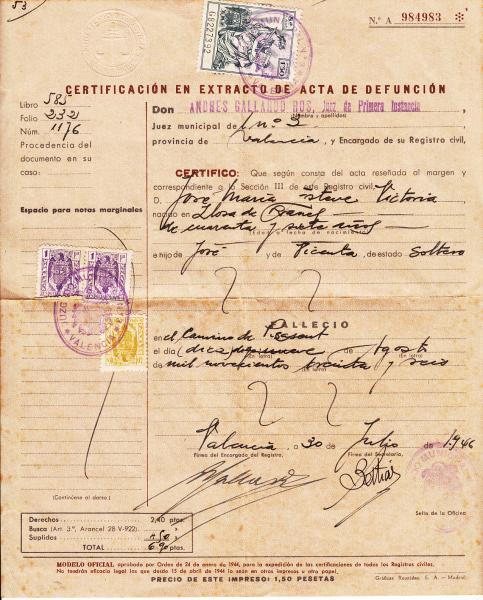 53
N.º A 984983
G8227392
1'50
CERTIFICACIÓN EN EXTRACTO DE ACTA DE DEFUNCIÓN
Libro 585
Folio 232
Núm. 1176
Procedencia del
documento en su
caso:
Espacio para notas marginales
(Continúa al dorso.)
Don ANDRES GALLARDO ROS, Juez de Primera Instancia,
(Nombre y apellidos)
Juez municipal de nº 3
provincia de Valencia, y Encargado de su Registro civil,
CERTIFICO: Que según consta del acta reseñada al margen y
correspondiente a la Sección III de este Registro civil,
D. José María Esteve Victoria
nacido en Llosa de Ranes
de cuarenta y siete años
(Edad o fecha de nacimiento)
es hijo de José y de Vicenta, de estado Soltero
FALLECIO
en el Camino de
el día diez y nueve de Agosto
(En letra) (En letra)
de mil novecientos treinta y seis
(En letra)
Valencia, a 30 de Julio de 1.946
Firma del Encargado del Registro, Firma del Secretario,
Sello de la Oficina
Derechos 2,40 ptas.
Busca (Art. 3.º, Arancel 28 V-922)
Suplidos 4'50
TOTAL 6'90 ptas.
MODELO OFICIAL aprobado por Orden de 24 de enero de 1944, para la expedición de las certificaciones de todos los Registros civiles.
No tendrán eficacia legal las que desde 15 de abril de 1944 lo sean en otros impresos u otro papel.
PRECIO DE ESTE IMPRESO: 1,50 PESETAS
Gráficas Reunidas, S. A. — Madrid